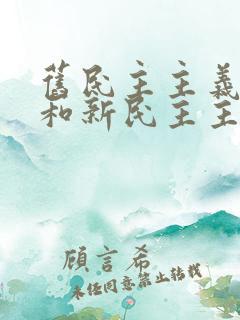 舊民主主義
和新民主主
顧言希
未經同意禁止轉載